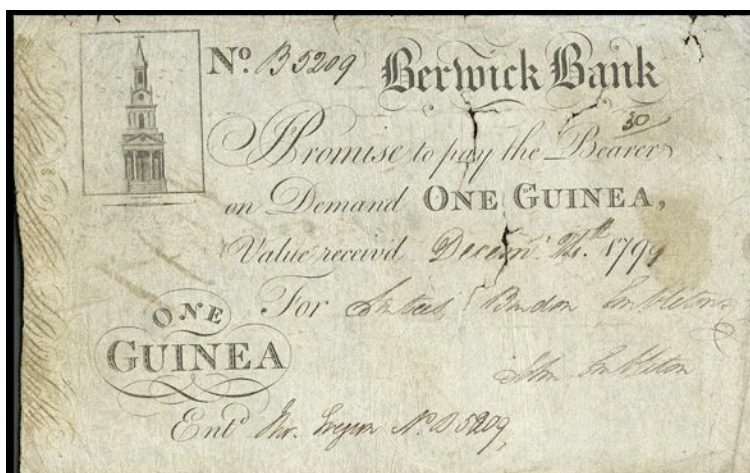 No. B 5209 Berwick Bank
30
I Promise to pay the Bearer
on Demand ONE GUINEA,
Value received Decem.r 24.th 1799
For Burdon Embleton
ONE
GUINEA
John Embleton
Entd No. B 5209,